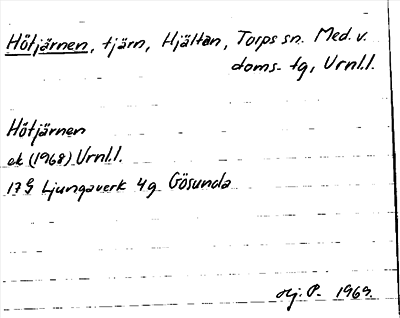 Hötjärnen, tjärn, Hjältan, Torps sn. Med. v.
doms. tg, Urnl.l.
Hötjärnen
ek (1968) Urnl.l.
17 G Ljungaverk 4 g Gösunda
1969.